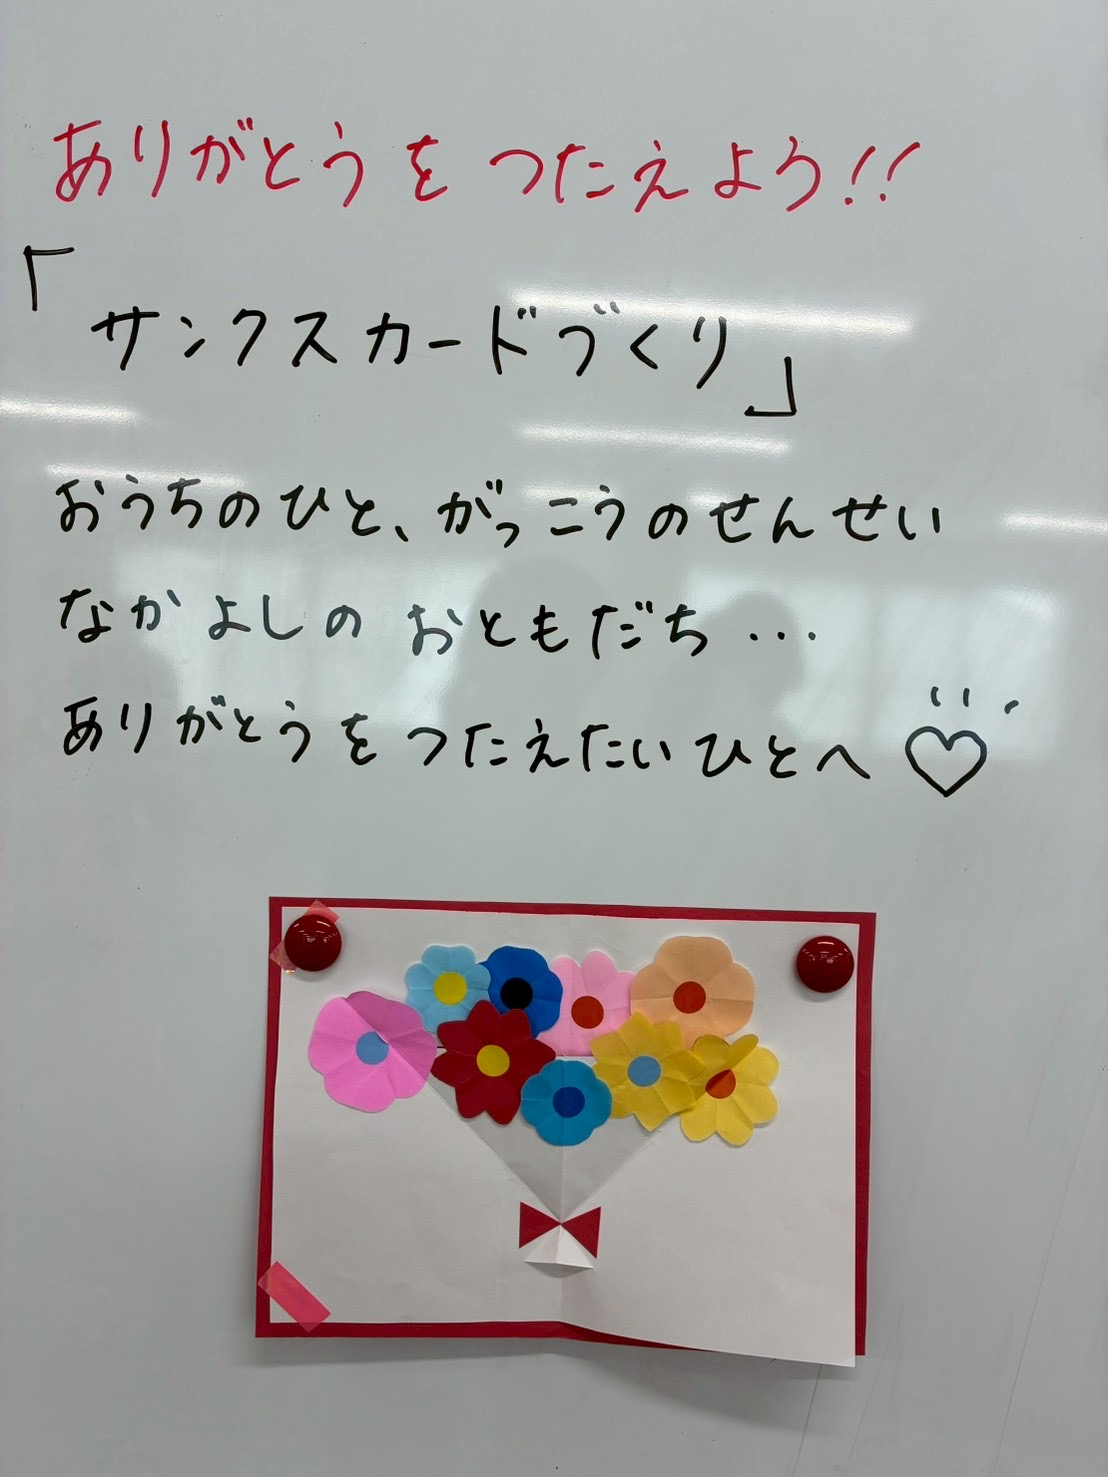 ありがとうをつたえよう!!
「サンクスカードづくり」
おうちのひと、がっこうのせんせい
なかよしのおともだち…
ありがとうをつたえたいひとへ♡